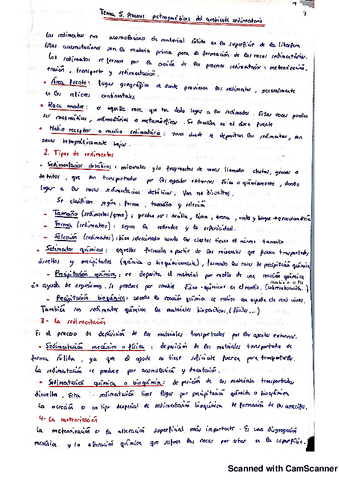 Tema 5. Procesos petrogenéticos del ambiente sedimentario
Los sedimentos son acumulaciones de material sólido en la superficie de la litosfera
Estas acumulaciones son la materia prima para la formación de las rocas sedimentarias.
Los sedimentos se forman por la acción de los procesos sedimentarios: meteorización,
erosión, transporte y sedimentación.
• Área fuente: lugar geográfico de donde provienen los sedimentos, generalmente
en los relieves continentales
• Roca madre: o aquella roca que ha dado lugar a los sedimentos. Estas rocas pueden
ser magmáticas, sedimentarias o metamórficas. Se localiza en el área fuente
• Medio receptor o medio sedimentario: zona donde se depositan los sedimentos, son
zonas topográficamente bajas.
2. Tipos de sedimentos
• Sedimentos detríticos: minerales y/o fragmentos de rocas llamados clastos, granos o
detritos, que son transportados por los agentes externos física o químicamente, dando
lugar a las rocas sedimentarias detríticas. Van no disueltos.
Se clasifican según: forma, tamaño y selección
- Tamaño (sedimentos/grano): puede ser: arcilla, limo, arena,
- Forma (sedimentos): según la redondez y la esfericidad.
- Selección (sedimentos): bien seleccionado cuando los clastos tienen el mismo tamaño
• Sedimentos químicos: aquellos formados a partir de los minerales que fueron transportados
disueltos y precipitados (química o bioquímicamente), formando las rocas de precipitación química
- Precipitación química: se deposita el material por medio de una reacción química
sin ayuda de organismos. Se produce por cambio físico-químico en el medio.
- Precipitación bioquímica: cuando la reacción química se realiza con ayuda de seres vivos.
También son sedimentos químicos los materiales bioquímicos (fósiles...)
3- La sedimentación
Es el proceso de deposición de los materiales transportados por los agentes externos.
• Sedimentación mecánica o física: deposición de los materiales transportados de
forma sólida, ya que el agente no tiene suficiente fuerza para transportarlos.
La sedimentación se produce por acumulación y
• Sedimentación química o bioquímica: deposición de los materiales transportados
disueltos. Esta sedimentación tiene lugar por precipitación química o bioquímica
La es un tipo especial de sedimentación bioquímica de formación de los arrecifes.
4- La meteorización
La meteorización es la alteración superficial más importante. Es una disgregación
mecánica y/o alteración química que sufren las rocas por estar en la superficie.
Scanned with CamScanner